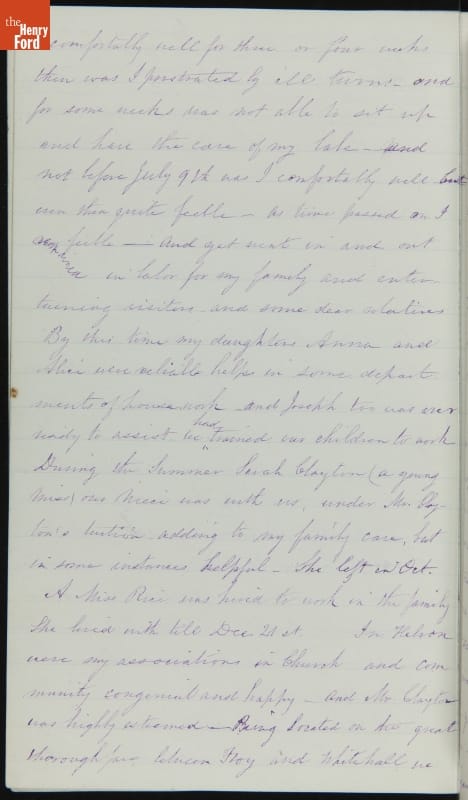 the
Henry
Ford
comfortably well for three or four weeks
then was I prostrated by ill turns - and
for some weeks was not able to sit up
and have the care of my babe - and
not before July 9th was I comfortably well but
even then quite feeble - as time passed on I
remained feeble - and yet went in and out
in labor for my family and enter-
taining visitors and some dear relatives
By this time my daughters Anna and
Alice were reliable helps in some depart-
ments of house work - and Joseph too was ever
ready to assist - We had trained our children to work
During the Summer Sarah Clayton (a young
Miss) our niece was with us, under Mr Clay-
ton's tuition adding to my family care, but
in some instances helpful - She left in Oct.
A Miss Rice was hired to work in the family
She lived with till Dec 21st. In
were my associations in Church and com
munity congenial and happy - and Mr Clayton
was highly esteemed - Being located on the great
thorough fare between Troy and Whitehall we